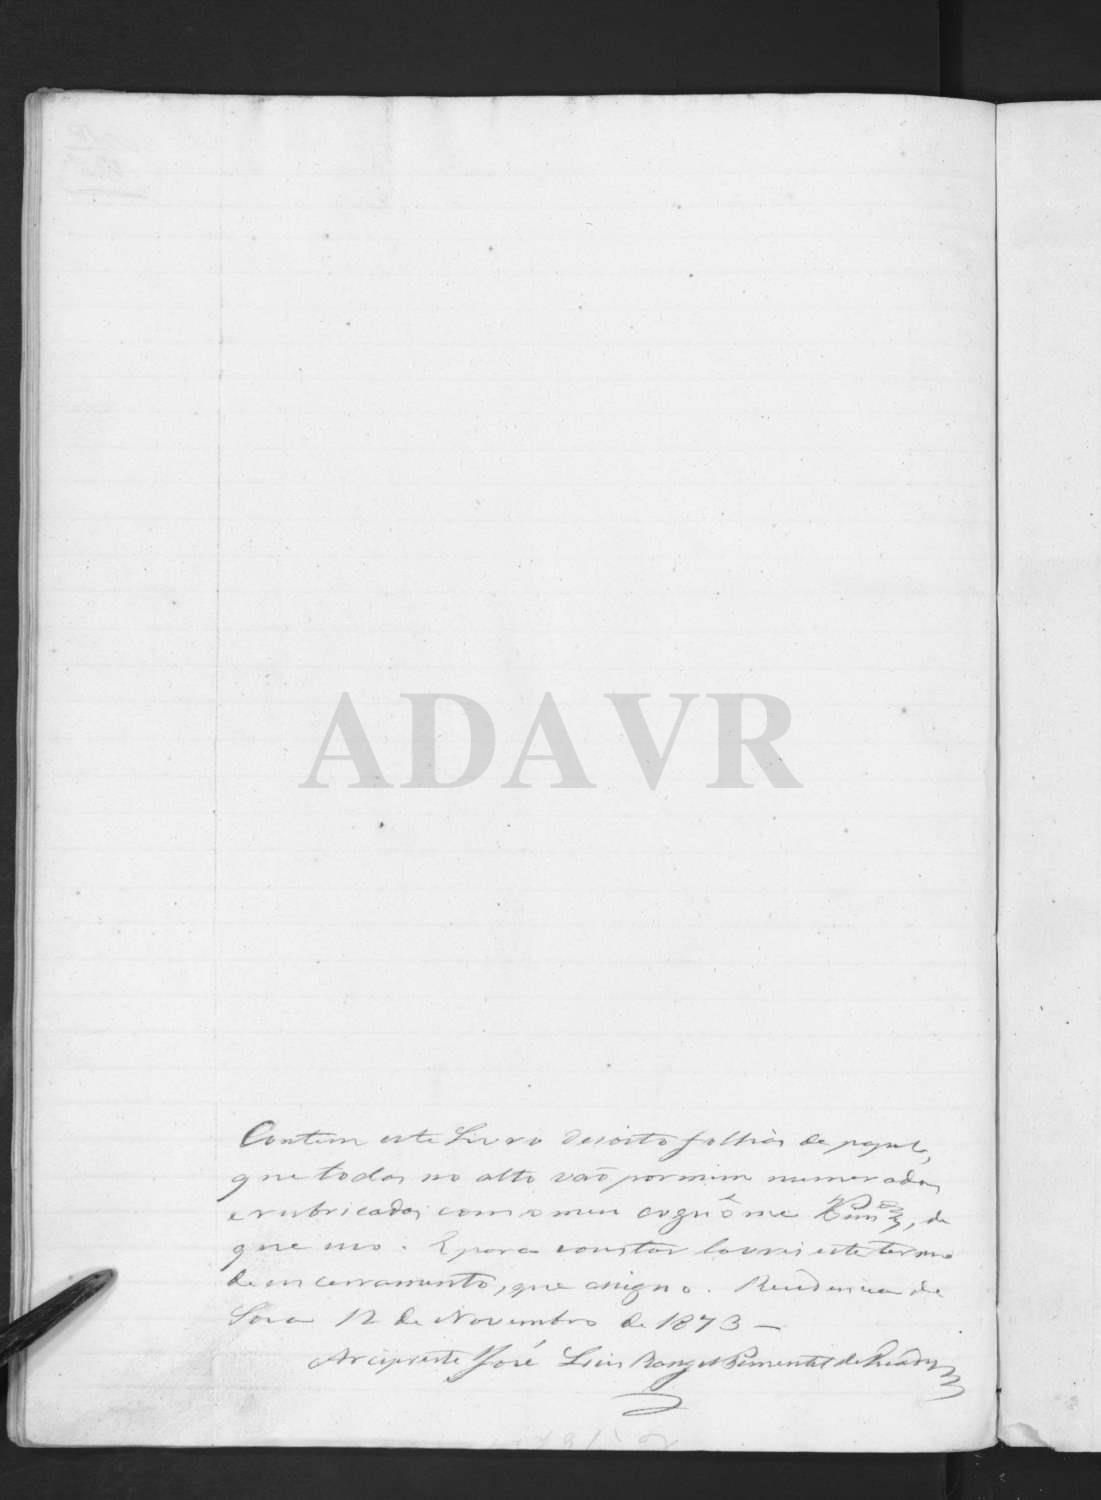 ADAVR
Contem este Livro desoito folhas de papel,
que todas no alto vaõ por mim numeradas
e rubricadas com o meu cognôme de
que uso. E para constar lavrei este termo
de encerramento, que assigno. Residencia de
12 de Novembro de 1873 –
Arcipreste José Luis Rangel Pimentel de